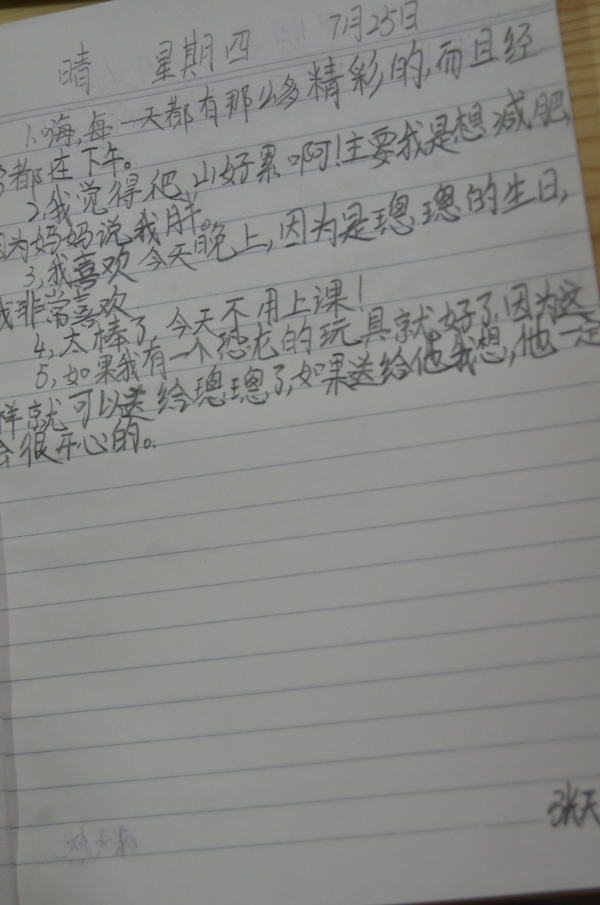 晴 星期四 7月25日
1、嗨,每一天都有那么多精彩的,而且经
常都在下午。
2、我觉得爬山好累啊!主要我是想减肥,
因为妈妈说我胖。
3、我喜欢今天晚上,因为是璁璁的生日,
我非常喜欢
4、太棒了,今天不用上课!
5、如果我有一个恐龙的玩具就好了,因为这
样就可以送给璁璁了,如果送给他我想,他一定
会很开心的。
张天